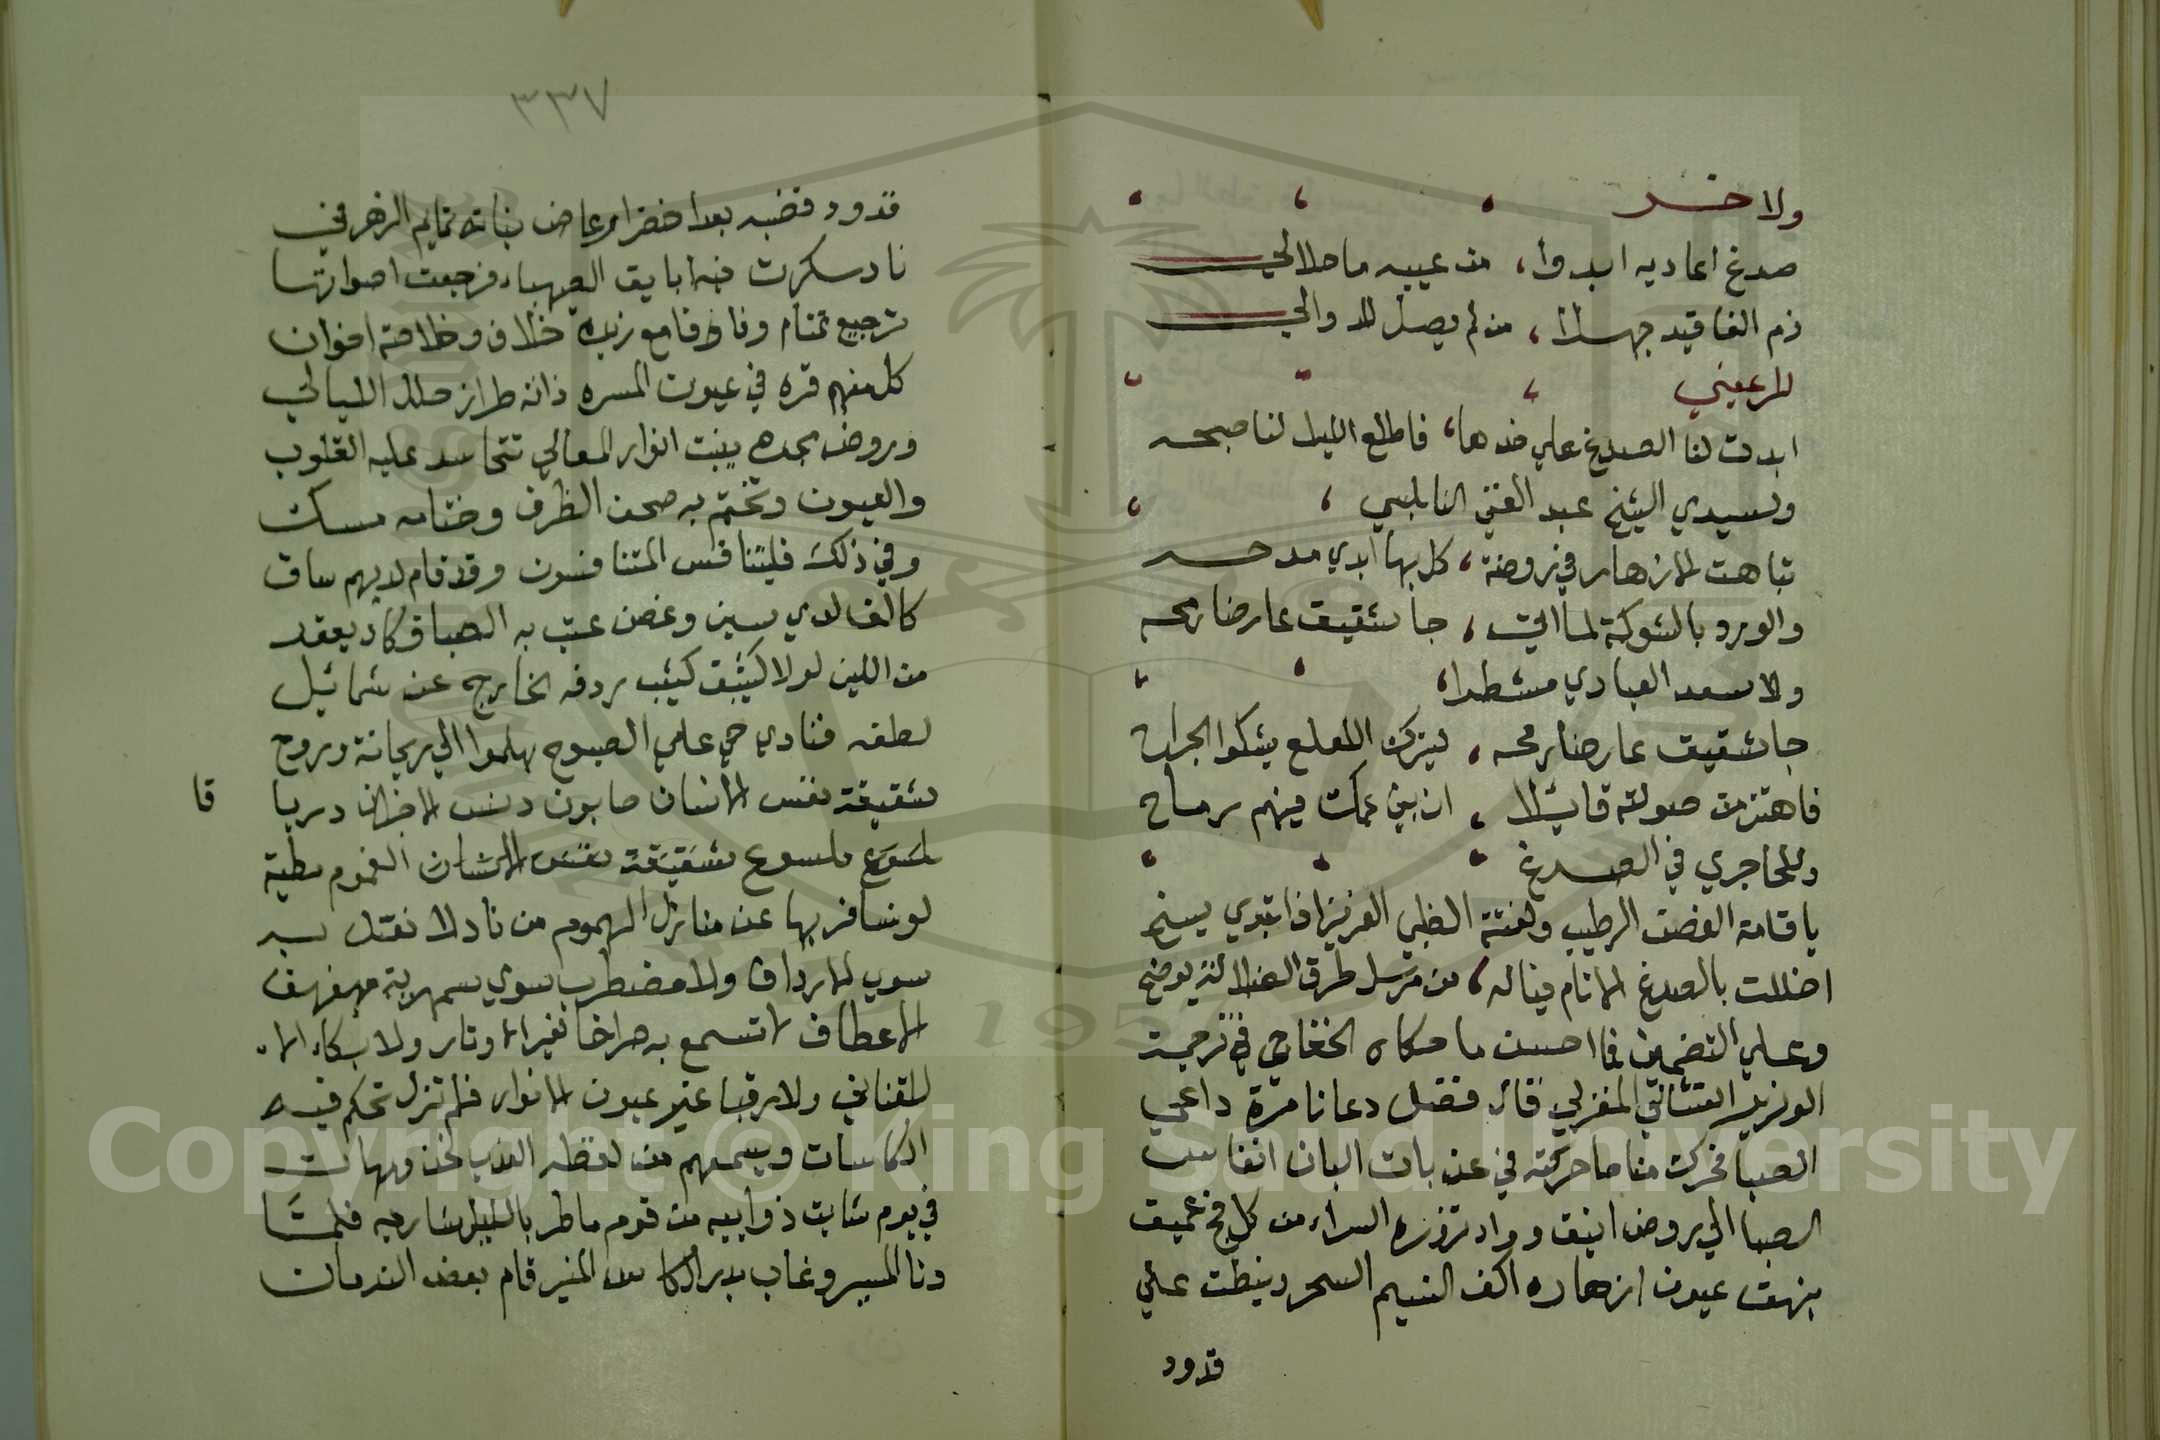 ولاخر
صدغ اعاديه ابدوا، من عيبه ما حلالي
زم العناقيد جهلا، من لم يصل للدوالي
للرعيني
ابدت لنا الصدغ علي خدها، فاطلع الليل لنا صبحه
ولسيدي الشيخ عبد الغني النابلسي
تباهت الازهار في روضة، كل بها ابدي مدحه
والورد بالشوكة لما اتي، جا شقيق عارضا رمحه
ولاسعد العبادي مشطرا
جا شقيق عارضا رمحه، ليترك اللعلع يشكوا الجراح
فاهتز من صولته قايلا، ان بني عمك فيهم رماح
وللحاجري في الصدغ
يا قامة الغصن الرطيب ولفتة الظبي الغرير اذا تبدي يسنح
اضللت بالصدغ الانام فياله، من مرسل طرق الضلالة يوضح
وعلي التضمين فما احسن ما حكاه الخفاجي في ترجمة
الوزير الفشتالي المغربي قال فصل دعانا مرة داعي
الصبا فحركت منا ما حركته في عذبات البان انفاس
الصبا الي روض انيق وواد تزوره السراء من كل فج عميق
نبهت عيون ازهاره اكف النسيم السحر ونيطت علي
قدود
٣٣٧
قدود قضبه بعد اخضرار عارض نباته تمايم الزهر في
ناد سكرت فيه اباريق الصهباء فرجعت اصواتها
ترجيع تمتام وفافا مع زينة خلان وخلاصة اخوان
كل منهم قره في عيون المسره ذاته طراز حلل الليالي
وروض مجده ينبت انوار المعالي تتحاسد عليه القلوب
والعيون وتختم به صحف الظرف وختامه مسك
وفي ذلك فليتنافس المتنافسون وقد قام لديهم ساق
كالف لدي سين وغصن عبث به الصبا فكاد يعقد
من اللين لولا كثيب ردفه الخارج عن شمائل
لطفه فنادي حي علي الصبوح هلموا الي ريحانة وروح
شقيقة نفس الانسان صابون دنس الاحزان درياق
لسوع ملسوع شقيقة نفس الانسان الغموم مطية
لو نسافر بها عن منازل الهموم من ناد لا نقتل به
سوي الارداف ولا مضطرب سوي سمهرية مهفهف
الاعطاف لا تسمع به صراخا غير الاوتار ولا بكاء الا
للقناني ولا رقبا غير عيون الانوار فلم تزل تحكم فيه
الكاسات ويسمعهم من لفظه العذب لحن وهات
في يوم شابت ذوابيه من قوم ما طر بالليل شاربه فلما
دنا المسير وغاب بدر الكاس المنير قام بعض الندمان